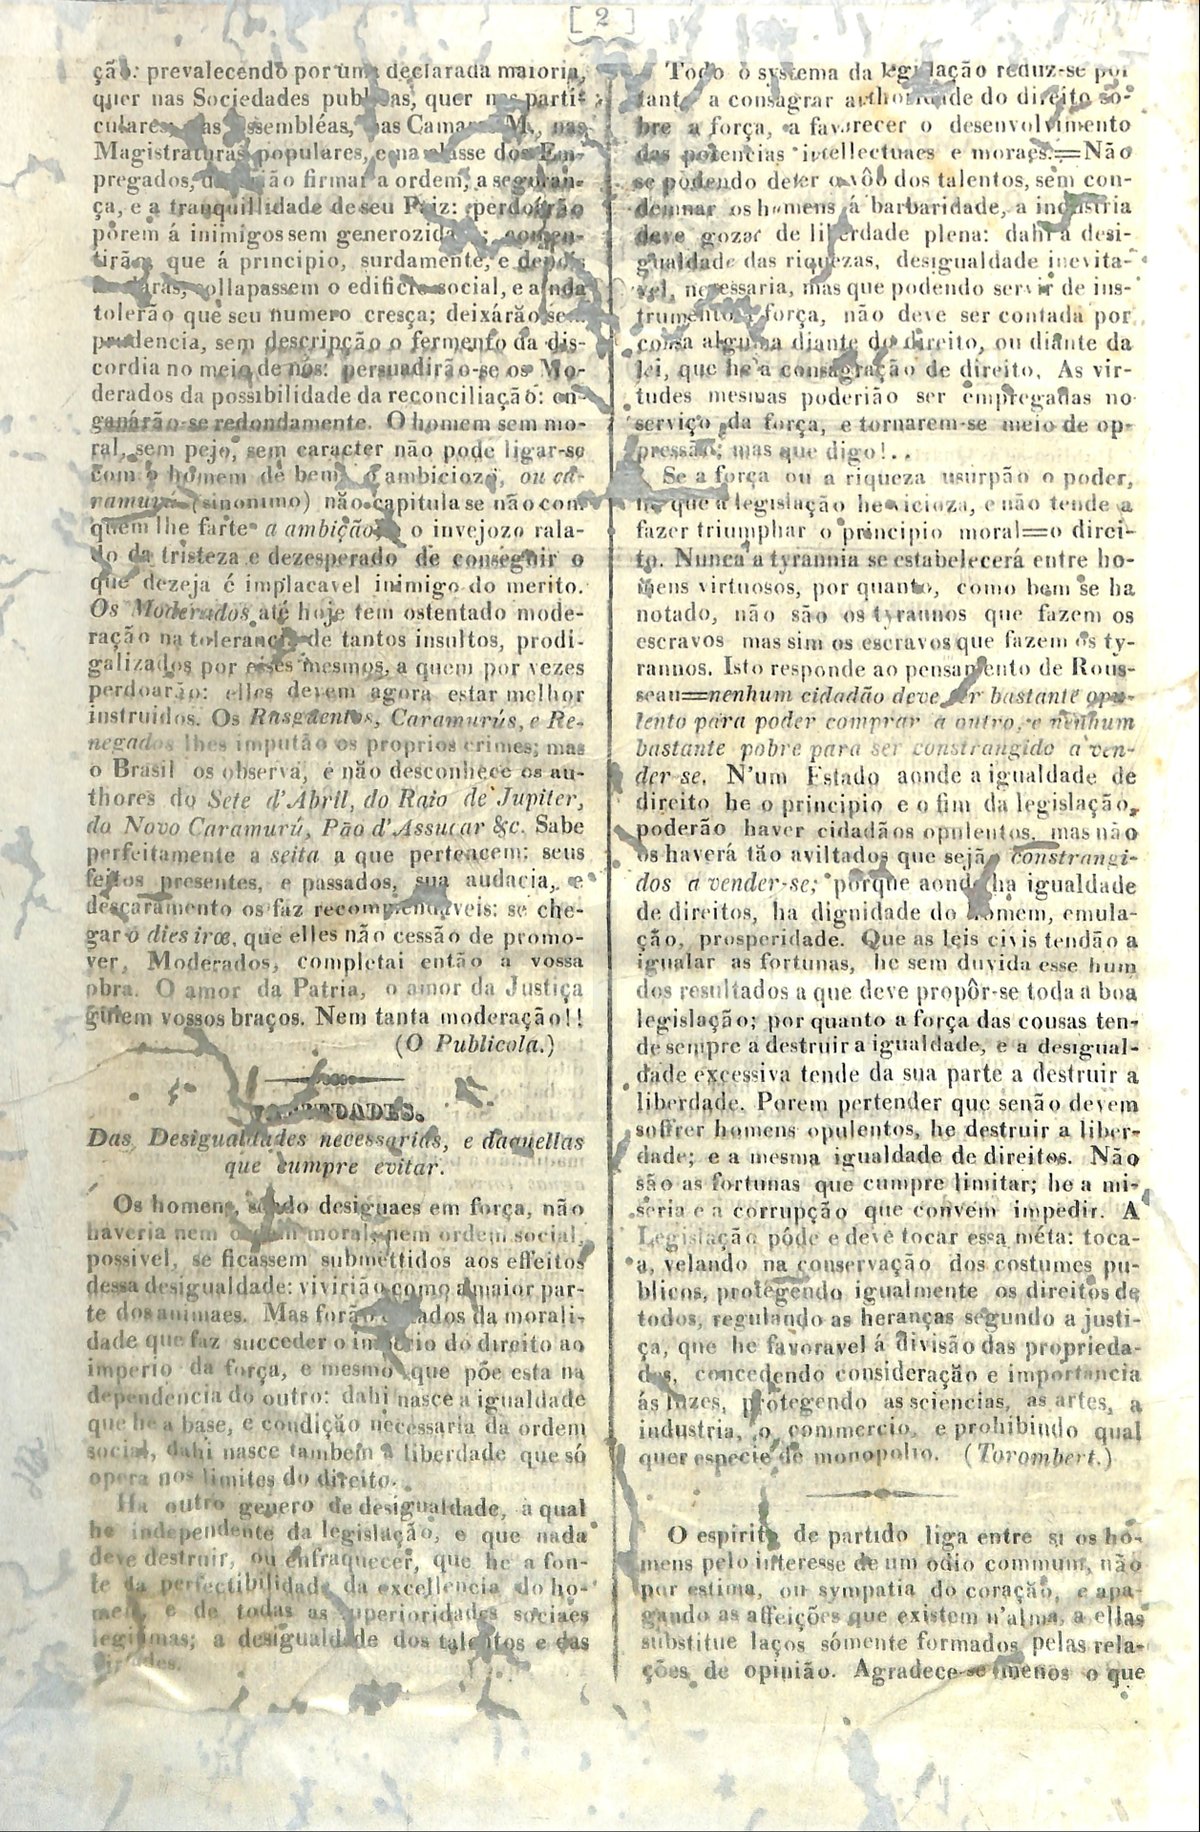 [ 2 ]
ção: prevalecendo por uma declarada maioria,
quer nas Sociedades publicas, quer nas parti-
culares, nas Assembléas, nas Camaras M., nas
Magistraturas populares, e na classe dos Em-
pregados, não firmar a ordem, a seguran-
ça, e a tranquillidade de seu Paiz: perdoárão
porem á inimigos sem generozidade; consen-
tirão que á principio, surdamente, e depois
collapassem o edificio social, e ainda
tolerão que seu numero cresça; deixárão se...
prudencia, sem descripção o fermento da dis-
cordia no meio de nós: persuadirão-se os Mo-
derados da possibilidade da reconciliação: en-
ganárão-se redondamente. O homem sem mo-
ral, sem pejo, sem caracter não pode ligar-se
com o homem de bem; o ambiciozo, ou ca-
ramurú (sinonimo) não capitula se não com
quem lhe farte a ambição; o invejozo rala-
do da tristeza e dezesperado de conseguir o
que dezeja é implacavel inimigo do merito.
Os Moderados até hoje tem ostentado mode-
ração na tolerancia de tantos insultos, prodi-
galizados por esses mesmos, a quem por vezes
perdoarão: elles devem agora estar melhor
instruidos. Os Rusguentos, Caramurús, e Re-
negados lhes imputão os proprios crimes; mas
o Brasil os observa, e não desconhece os au-
thores do Sete d'Abril, do Raio de Jupiter,
do Novo Caramurú, Pão d'Assucar &c. Sabe
perfeitamente a seita a que pertencem: seus
feitos presentes, e passados, sua audacia, e
descaramento os faz recomendaveis: se che-
gar o dies iræ, que elles não cessão de promo-
ver, Moderados, completai então a vossa
obra. O amor da Patria, o amor da Justiça
guiem vossos braços. Nem tanta moderação!!
(O Publicola.)
VARIEDADES.
Das Desigualdades necessarias, e daquellas
que cumpre evitar.
Os homens, sendo desiguaes em força, não
haveria nem ordem moral, nem ordem social,
possivel, se ficassem submettidos aos effeitos
dessa desigualdade: vivirião como a maior par-
te dos animaes. Mas forão dotados da morali-
dade que faz succeder o imperio do direito ao
imperio da força, e mesmo que põe esta na
dependencia do outro: dahi nasce a igualdade
que he a base, e condição necessaria da ordem
social, dahi nasce tambem a liberdade que só
opera nos limites do direito.
Ha outro genero de desigualdade, à qual
he independente da legislação, e que nada
deve destruir, ou enfraquecer, que he a fon-
te da perfectibilidade da excellencia do ho-
mem, e de todas as superioridades sociaes
legitimas; a desigualdade dos talentos e das
virtudes.
Todo o systema da legislação reduz-se por
tanto a consagrar authoridade do direito so-
bre a força, a favorecer o desenvolvimento
das potencias intellectuaes e moraes.=Não
se podendo deter o vôo dos talentos, sem con-
demnar os homens á barbaridade, a industria
deve gozar de liberdade plena: dahi a desi-
gualdade das riquezas, desigualdade inevita-
vel, necessaria, mas que podendo servir de ins-
trumento á força, não deve ser contada por
coisa alguma diante do direito, ou diante da
lei, que he a consagração de direito. As vir-
tudes mesmas poderião ser empregadas no
serviço da força, e tornarem-se meio de op-
pressão; mas que digo!..
Se a força ou a riqueza usurpão o poder,
he que a legislação he vicioza, e não tende a
fazer triumphar o principio moral=o direi-
to. Nunca a tyrannia se estabelecerá entre ho-
mens virtuosos, por quanto, como bem se ha
notado, não são os tyrannos que fazem os
escravos mas sim os escravos que fazem os ty-
rannos. Isto responde ao pensamento de Rous-
seau=nenhum cidadão deve ser bastante opu-
lento para poder comprar a outro, e nenhum
bastante pobre para ser constrangido a ven-
der-se. N'um Estado aonde a igualdade de
direito he o principio e o fim da legislação,
poderão haver cidadãos opulentos, mas não
os haverá tão aviltados que sejão constrangi-
dos a vender-se; porque aonde ha igualdade
de direitos, ha dignidade do homem, emula-
ção, prosperidade. Que as leis civis tendão a
igualar as fortunas, he sem duvida esse hum
dos resultados a que deve propôr-se toda a boa
legislação; por quanto a força das cousas ten-
de sempre a destruir a igualdade, e a desigual-
dade excessiva tende da sua parte a destruir a
liberdade. Porem pertender que senão devem
soffrer homens opulentos, he destruir a liber-
dade; e a mesma igualdade de direitos. Não
são as fortunas que cumpre limitar; he a mi-
seria e a corrupção que convem impedir. A
Legislação póde e deve tocar essa méta: toca-
a, velando na conservação dos costumes pu-
blicos, protegendo igualmente os direitos de
todos, regulando as heranças segundo a justi-
ça, que he favoravel á divisão das proprieda-
des, concedendo consideração e importancia
ás luzes, protegendo as sciencias, as artes, a
industria, o commercio, e prohibindo qual
quer especie de monopolio. (Torombert.)
O espirito de partido liga entre si os ho-
mens pelo interesse de um odio commum, não
por estima, ou sympatia do coração, e apa-
gando as affeições que existem n'alma, a ellas
substitue laços sómente formados pelas rela-
ções de opinião. Agradece-se menos o que